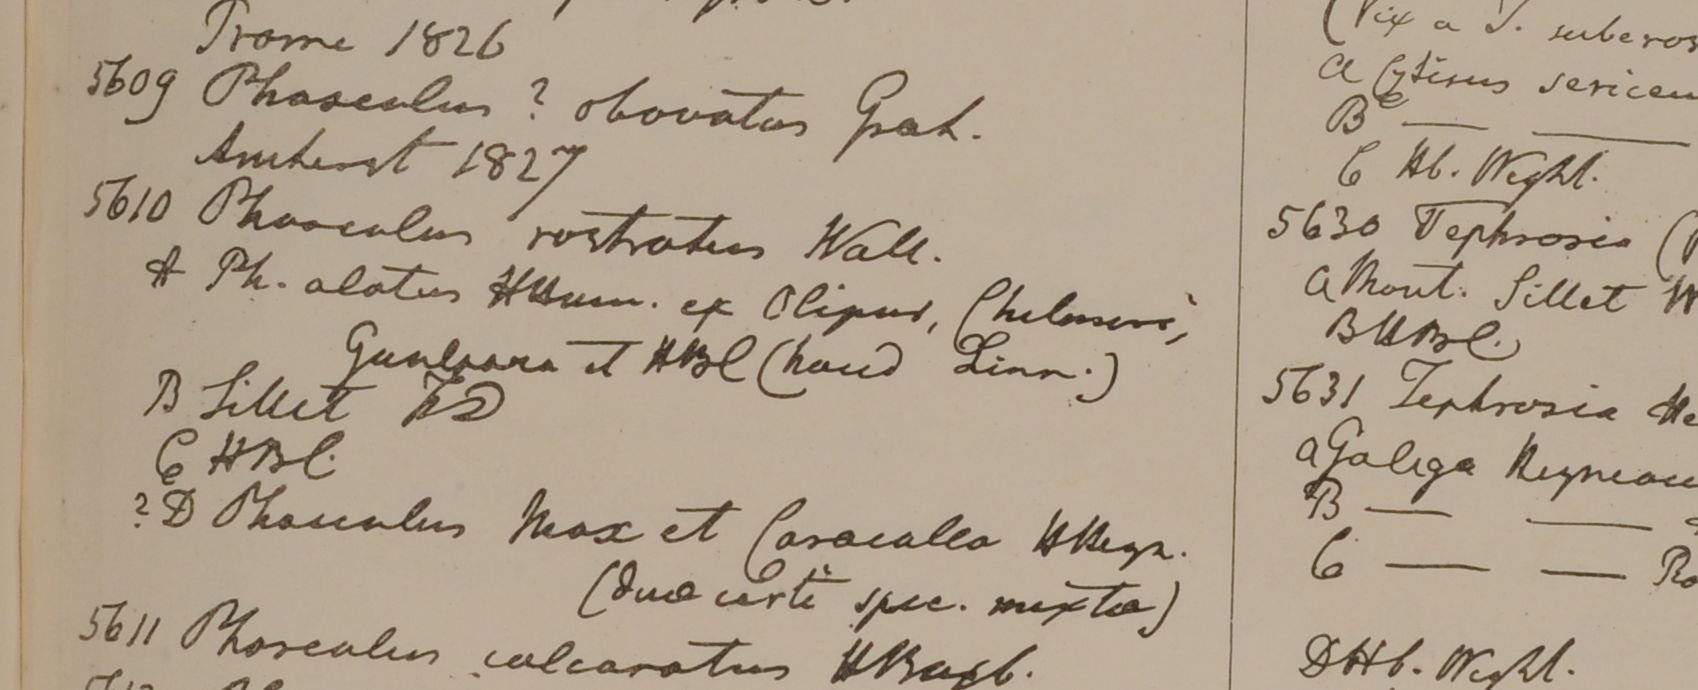 Prome 1826
5609 Phaseolus ? obovatus Grah.
Amherst 1827
5610 Phaseolus rostratus Wall.
A Ph. alatus HHam. ex Olipur,
et HBC (haud Linn.)
B Sillet FD
C HBC.
? D Phaseolus Max et Caracalla HHeyn.
(duae certe spec. mixtae)
5611 Phaseolus calcaratus HRoxb.
(Vix a T. suberos
a Cytisus sericeu
B — —
C Hb. Wight.
5630 Tephrosia (
a Mont. Sillet W
B HBC.
5631 Tephrosia He
a Galega Heyneana
B — —
C — — Ro
D Hb. Wight.